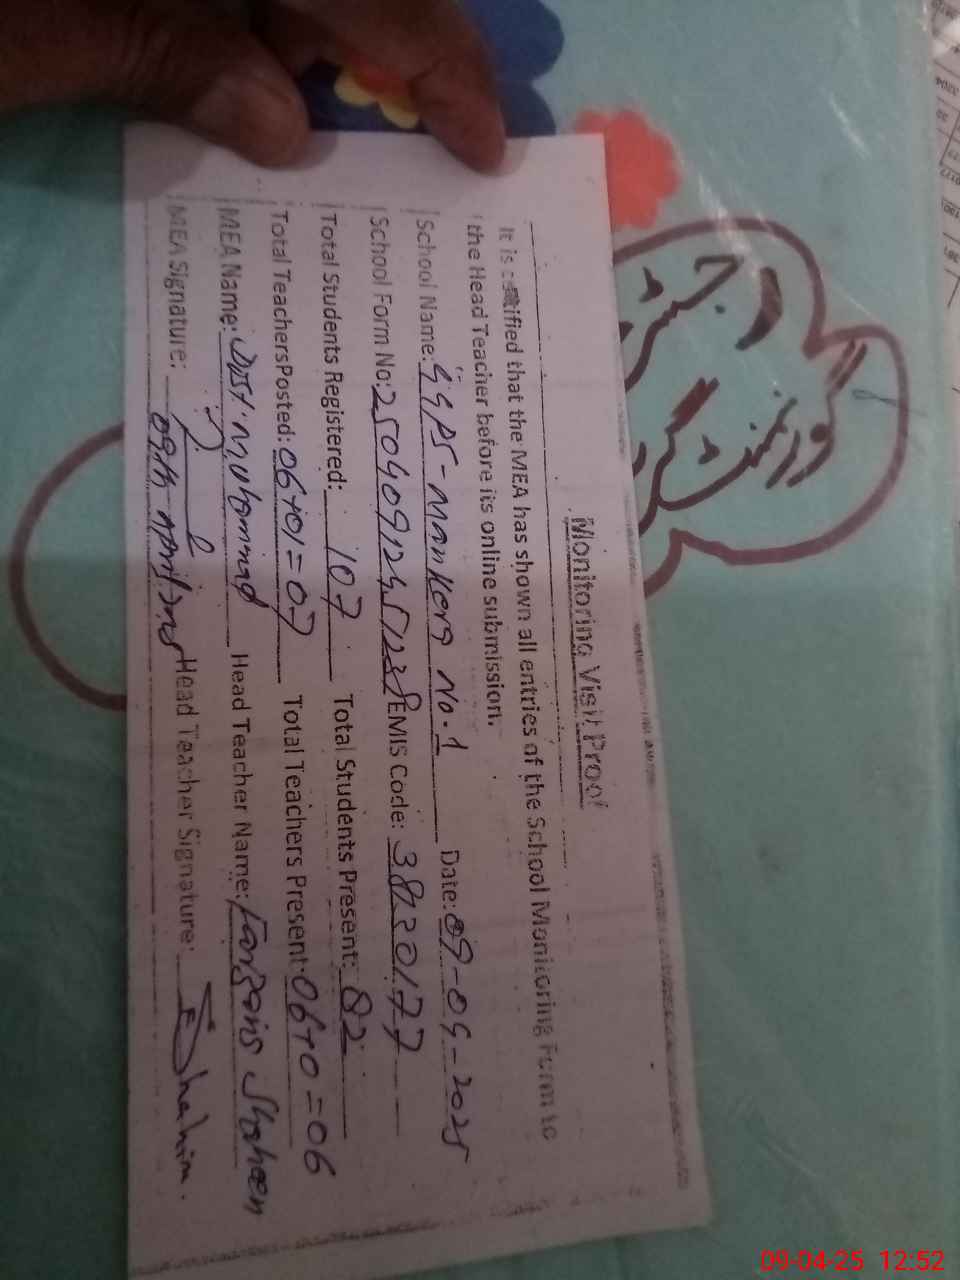 Monitoring Visit Proof
It is certified that the MEA has shown all entries of the School Monitoring Form to
the Head Teacher before its online submission.
School Name: GGPS - Mankera No. 1 Date: 09-04-2025
School Form No: EMIS Code: 38230177
Total Students Registered: 107 Total Students Present: 82
Total TeachersPosted: 06+01=07 Total Teachers Present: 06+0=06
MEA Name: Muhammad Head Teacher Name: Shaheen
MEA Signature: 09th April Head Teacher Signature: Shahin.
09-04-25 12:52